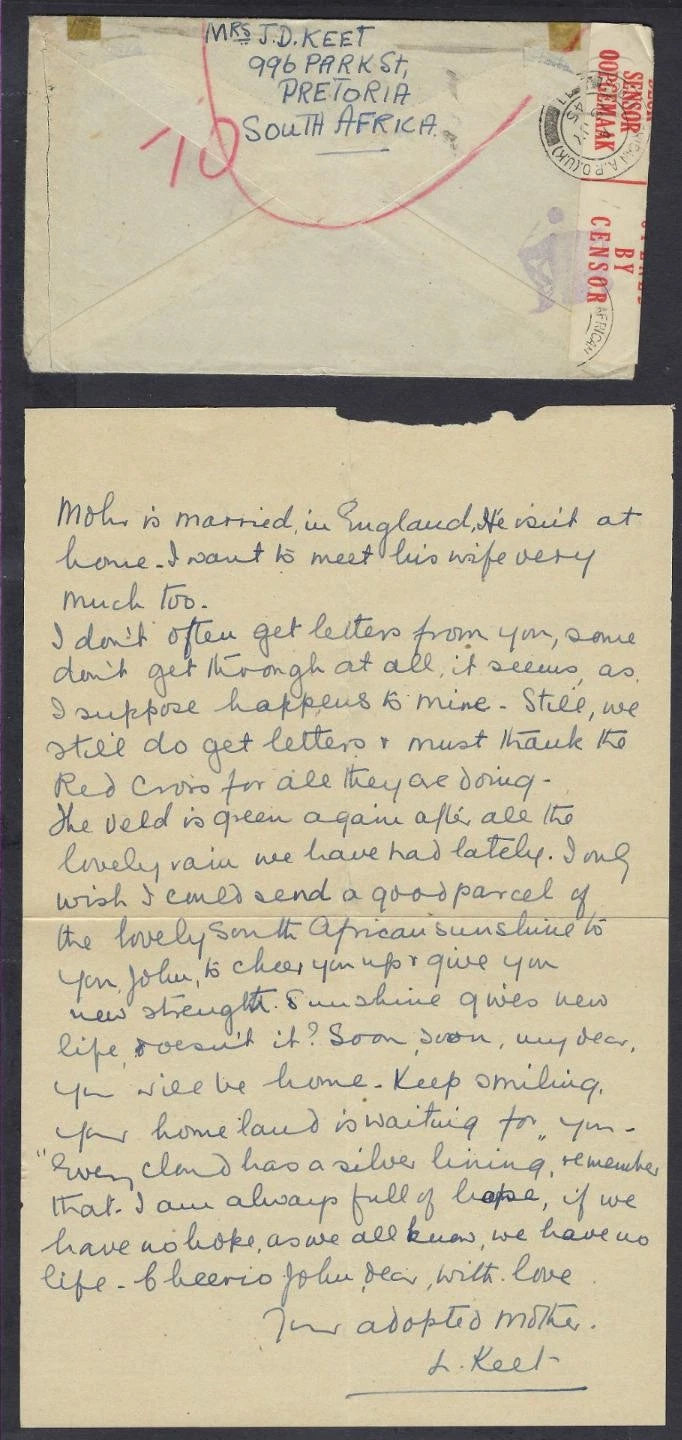 Mrs J.D. KEET
996 PARK St,
PRETORIA
SOUTH AFRICA.
10
SENSOR
OOPGEMAAK
BY
CENSOR
A.P.O.(U.K)
45
AFRICAN
Mohr is married, in England, He isn't at
home - I want to meet his wife very
much too.
I don't often get letters from you, some
don't get through at all, it seems, as
I suppose happens to mine - Still, we
still do get letters & must thank the
Red Cross for all they are doing -
The veld is green again after all the
lovely rain we have had lately. I only
wish I could send a good parcel of
the lovely South African sunshine to
you, John, to cheer you up & give you
new strength. Sunshine gives new
life, doesn't it? Soon, soon, my dear,
you will be home - Keep smiling,
your homeland is waiting for you -
"Every cloud has a silver lining," remember
that. I am always full of hope, if we
have no hope, as we all know, we have no
life - Cheerio John, dear, with love
Your adopted Mother.
L. Keet